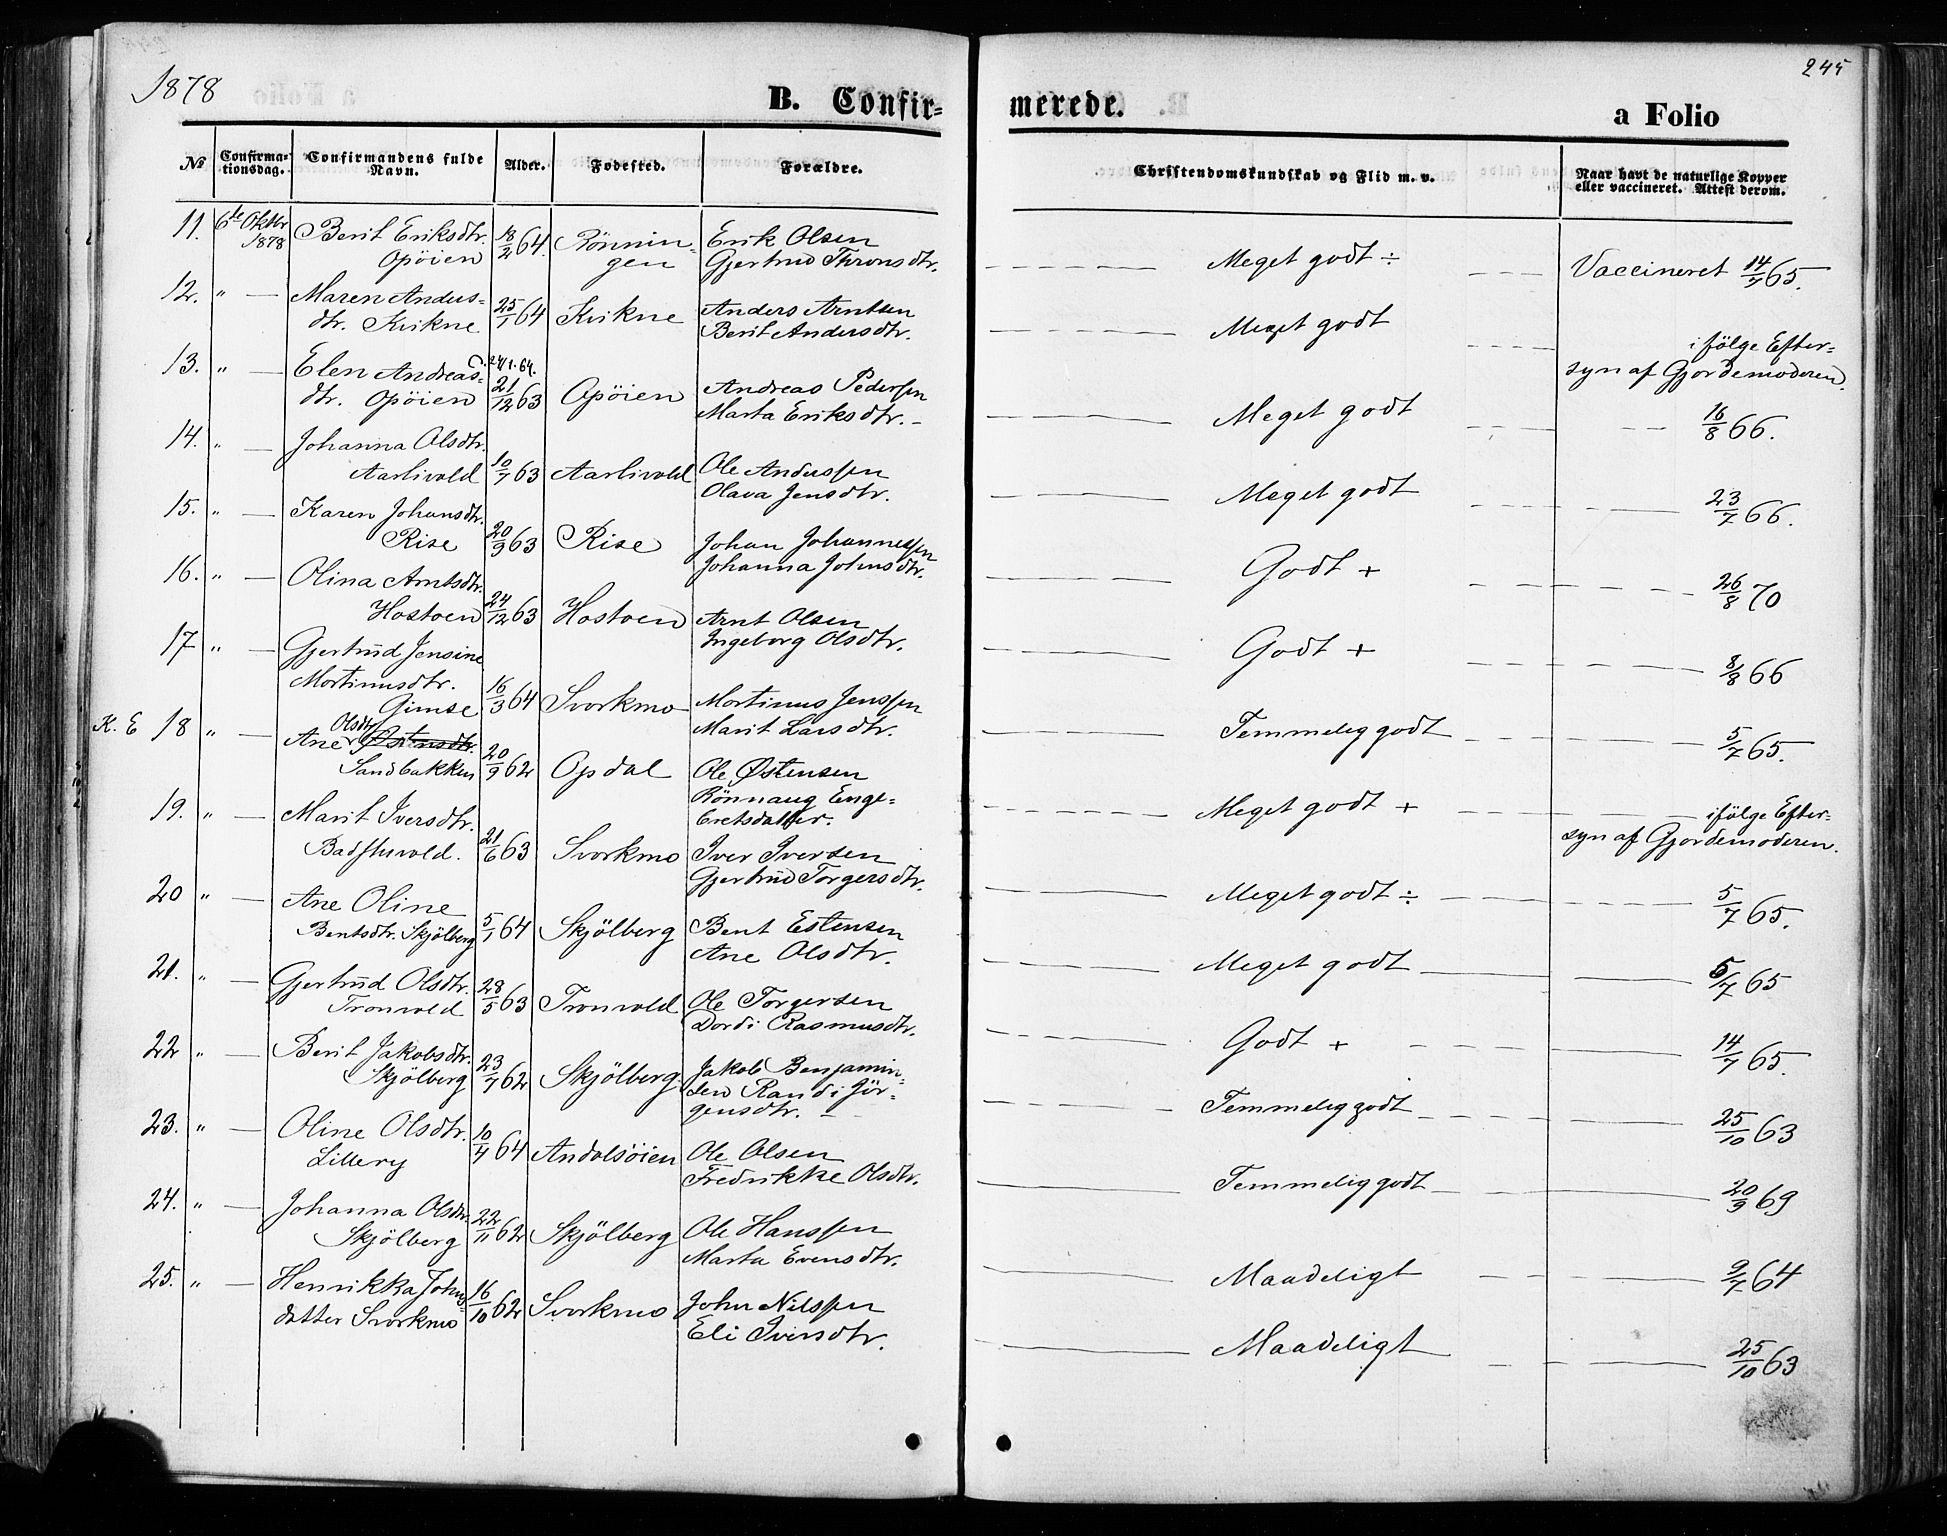 1878
245
B. Confir=
merede.
a Folio
№ Confirma=tionsdag. Confirmandens fulde Navn. Alder. Fødested. Forældre. Christendomskundskab og Flid m. v. Naar havt de naturlige Kopper eller vaccineret. Attest derom.
11. 6te Oktbr Berit Eriksdtr. 18/2 64. Rönnin- Erik Olsen
1878 Opöien gen Gjertrud Thronsdtr. Meget godt ÷ Vaccineret 14/7 65.
12. " — Maren Anders= 25/1 64 Kvikne Anders Arntsen
dtr. Kvikne Berit Andersdtr. Meget godt i fölge Efter=
syn af Gjordemoderen.
13. " — Elen Andreas= 24/1 64.
dtr. Opöien 21/12 63 Opöien Andreas Pedersen
Marta Eriksdtr. Meget godt 16/8 66.
14. " — Johanna Olsdtr.
Aarlivold 10/7 63 Aarlivold Ole Anderssen
Olava Jensdtr. Meget godt 23/7 66.
15. " — Karen Johansdtr.
Rise 20/9 63 Rise Johan Johannessen
Johanna Johnsdtr. Godt + 26/8 70
16. " — Olina Arntsdtr.
Hostoen 24/12 63 Hostoen Arnt Olsen
Ingeborg Olsdtr. Godt + 8/8 66
17 " — Gjertrud Jensine
Mortinusdtr.
Gimse 16/3 64 Svorkmo Mortinus Jenssen
Marit Larsdtr. Temmelig godt 5/7 65.
K. E 18 " — Ane Olsdtr Østensdtr.
Sandbakken 20/9 62 Opdal Ole Østensen
Rönnaug Enge=
bretsdatter. Meget godt + ifölge Efter=
syn af Gjordemoderen.
19. " — Marit Iversdtr.
Badstuvold. 21/6 63 Svorkmo Iver Iversen
Gjertrud Torgersdtr. Meget godt ÷ 5/7 65.
20 " — Ane Oline
Bentsdtr. Skjölberg 5/1 64 Skjölberg Bent Estensen
Ane Olsdtr. Meget godt 5/7 65
21. " — Gjertrud Olsdtr.
Tronvold 28/5 63 Tronvold Ole Torgersen
Dordi Rasmusdtr. Godt + 14/7 65.
22 " — Berit Jakobsdtr.
Skjölberg 23/7 62 Skjölberg Jakob Benjamin=
sen Randi Jör=
gensdtr. Temmelig godt 25/10 63
23. " — Oline Olsdtr.
Lillery 10/4 64 Andalsöien Ole Olsen
Fredrikke Olsdtr. Temmelig godt 20/9 69
24. " — Johanna Olsdtr.
Skjölberg 22/11 62 Skjölberg Ole Hanssen
Marta Evensdtr. Maadeligt 9/7 64
25. " — Henrikka Johns=
datter Svorkmo 16/10 62 Svorkmo John Nilssen
Eli Iversdtr. Maadeligt 25/10 63